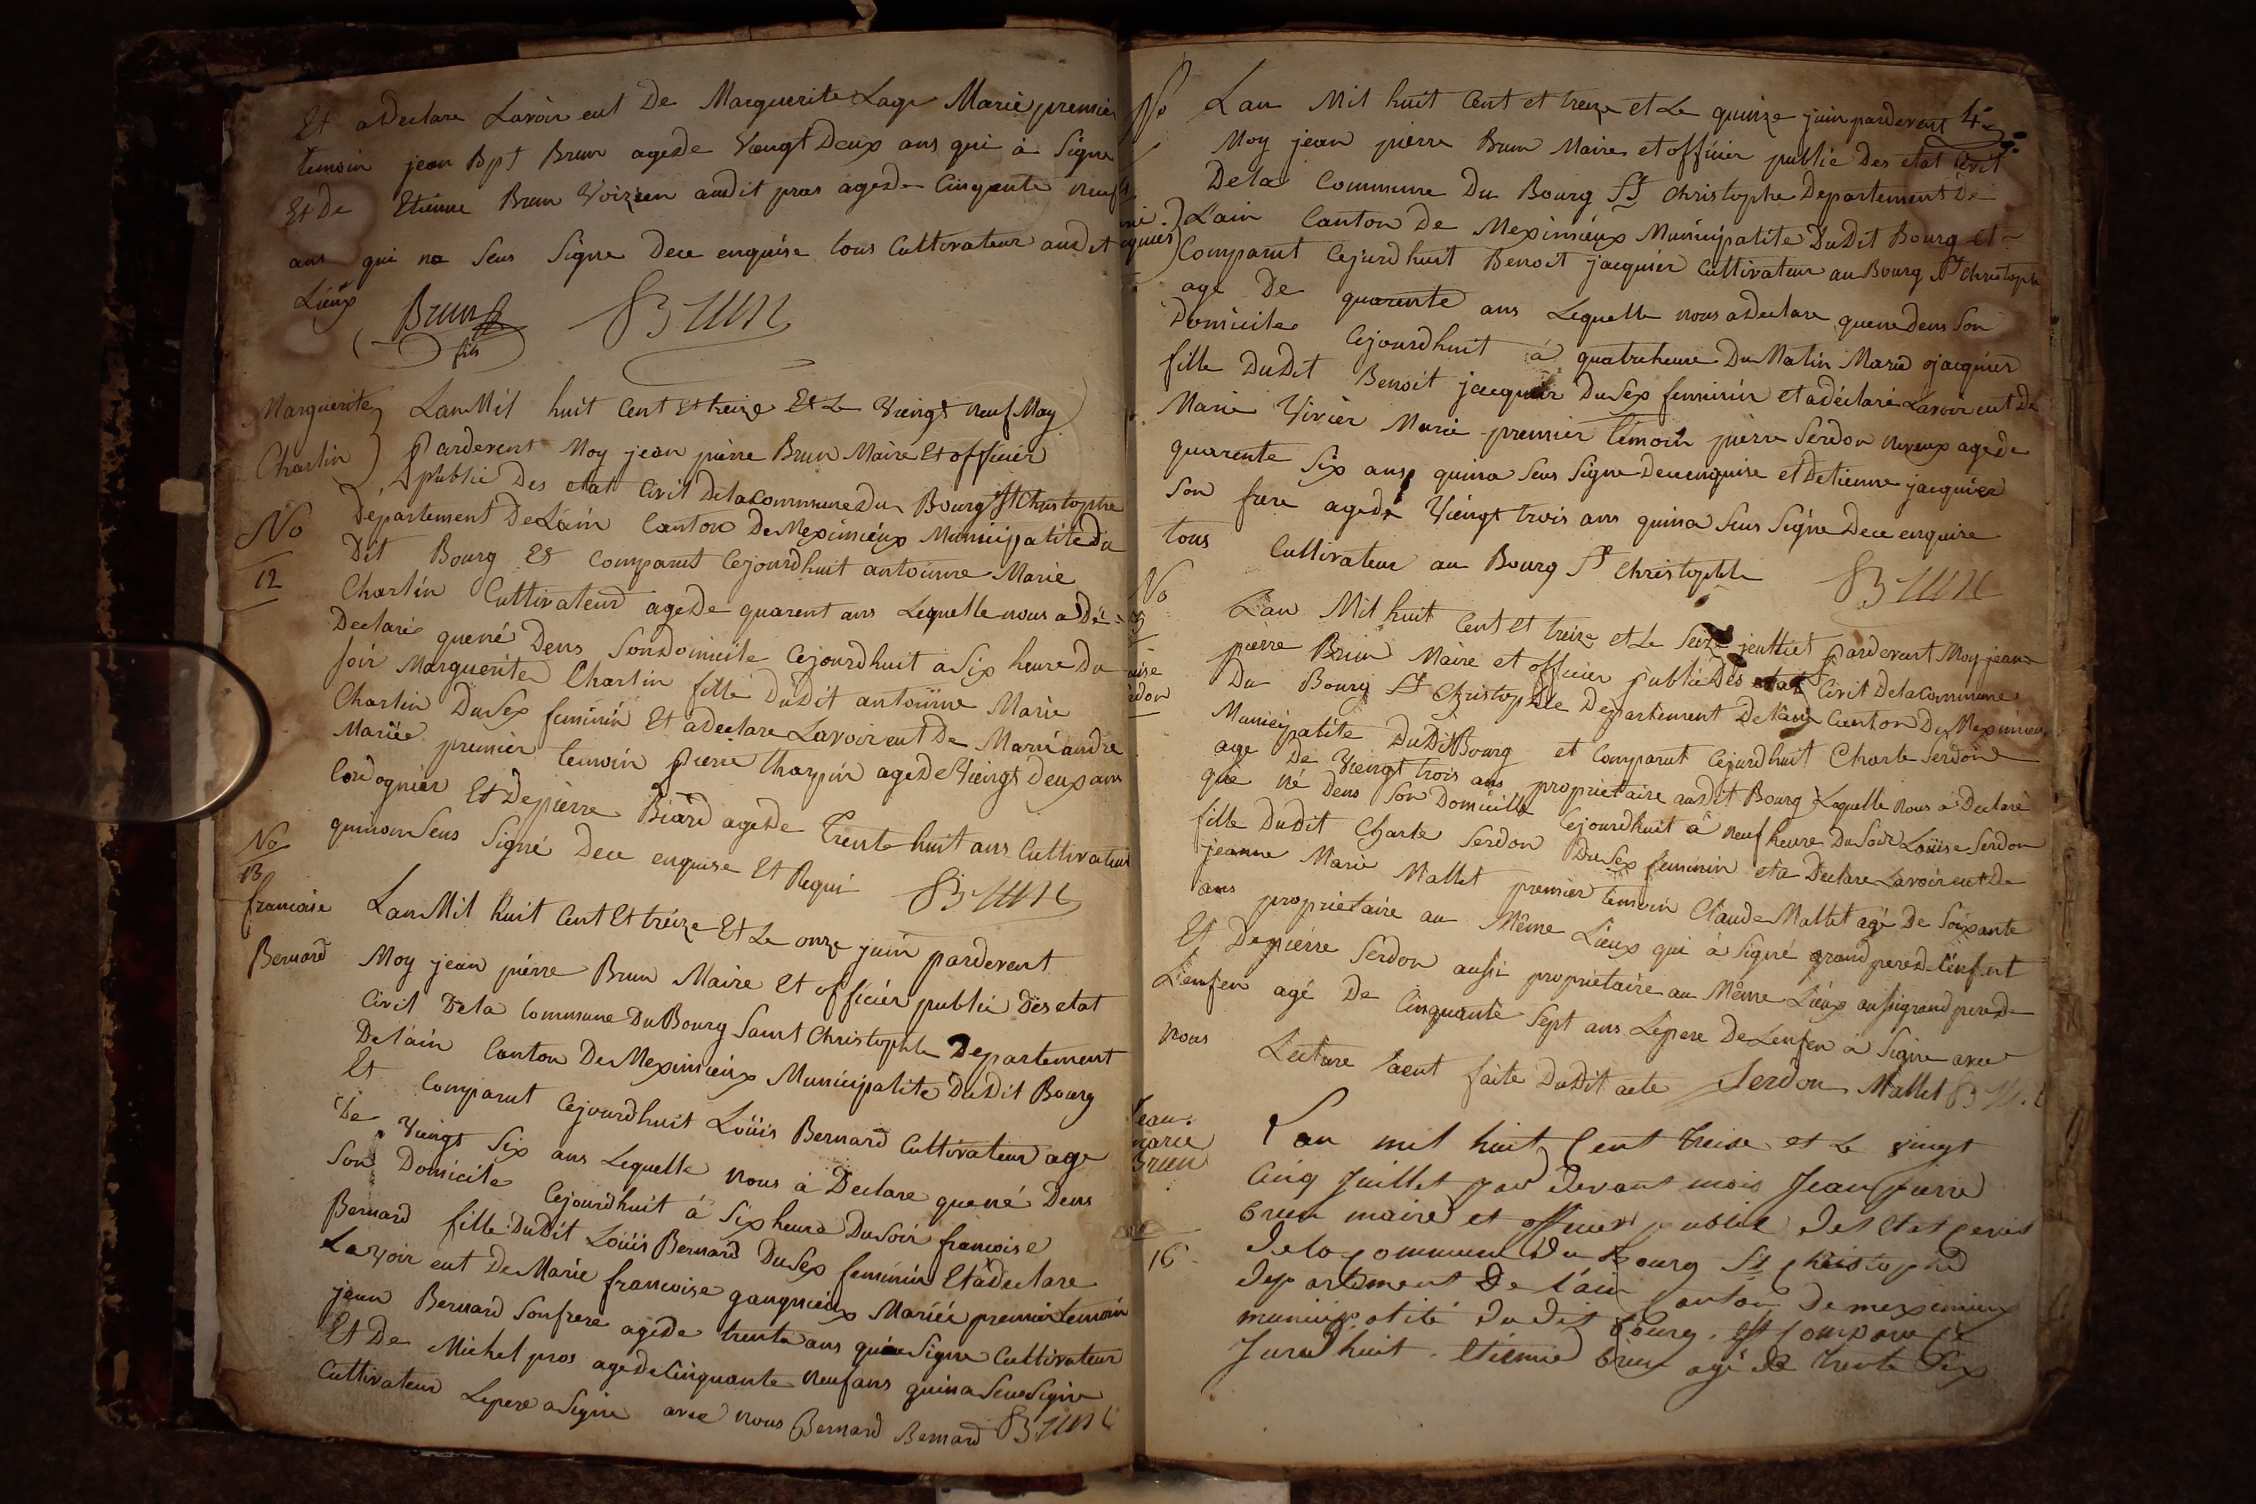 Et adeclare Lavoir eut De Marguerite Lage Marie premier
temoin jean Bpt Brun agede Vengt Deux ans qui à Signe
Et De Etienne Brun Voizien audit pros agede Cinquante neuf
ans qui na Seus Signe Dece enquise tous Cultivateur audit
Lieux
Brun fils
Brun
Marguerite
Charlin
No
12
Lan Mil huit Cent Et treize Et Le Viengt neuf May
Pardevent Moy jean pierre Brun Maire Et officier
public Des etat Civil Dela Commune Du Bourg St Christophe
Département DeLain Canton De Meximieux Municipalite du
Dit Bourg Et Comparut Cejourdhuit antoinne Marie
Charlin Cultivateur agede quarent ans Lequelle nous a Dé=
Declaré quené Dens Son Domicile Cejourdhuit a Six heure Du
soir Marguerite Charlin fille DuDit antoinne Marie
Charlin Du Sex feminin Et adeclare Lavoir eut De Marie andre
Mariée premier temoin pierre tharpin agede Viengt deux ans
Cordognier Et De pierre Biard agede Trente huit ans Cultivateur
quinon Seus Signé Dece enquise Et Requi
Brun
No
13
francoise
Bernard
Lan Mil huit Cent Et treize Et Le onze juin pardevent
Moy jean pierre Brun Maire Et officiér public Des etat
Civil Dela Commune Du Bourg Saint Christophle Departement
Delain Canton De Meximieux Municipalite DuDit Bourg
Et Comparut Cejourdhuit Loüis Bernard Cultivateur age
De Viengt Six ans Lequelle nous à Declare quené Dens
Son Domicile Cejourdhuit á Six heure Du Soir francoise
Bernard fille DuDit Loüis Bernard Du Sex feminin Et à declare
Lavoir eut De Marie francoise gangnieux Mariée premier temoin
jean Bernard Son frere agede trente ans quia Signe Cultivateur
Et De Michel pros agede Cinquante neuf ans quina Seus Signe
Cultivateur Lepere a Signe avec nous Bernard Bernard Brun
No
Lan Mil huit Cent et treize et Le quinze juin pardevent
Moy jean pierre Brun Maire et officier public Des etat Civil
Dela Commune Du Bourg St Christophe Departement De
Lain Canton De Meximieux Municipalite DuDit Bourg et
Comparut Cejurdhuit Benoit jacquier Cultivateur au Bourg St Christophe
age De quarente ans Lequelle nous a Declare quene dens Son
Domicile Cejourdhuit á quatre heure Du Matin Marie jacquier
fille DuDit Benoit jacquier Du Sex feminin et a déclaré Lavoir eut De
Marie Vivier Marie premier témoin pierre Serdon neveux agede
quarente Six ans quina Seus Signe Dece enquise et De tienne jacquier
Son frere agede Viengt trois ans quina Seus Signe Dece enquise
tous Cultivateur au Bourg St Christophle
Brun
No
Lan Mil huit Cent et treize et Le Seize jeulliet pardevent Moy jean
pierre Brun Maire et officier public Des etat Civil Dela Commune
Du Bourg St Christophle Departement Delain Canton De Meximieux
Municipalite DuDit Bourg et Comparut Cejurdhuit Charle Serdon
age De Viengt trois ans propriétaire audit Bourg Laquelle nous à Declare
que né dens Son Domicille Cejourdhuit à neuf heure Du Soir Loüise Serdon
fille Dudit Charle Serdon Du Sex feminin et a Declare Lavoir eut De
jeanne Marie Mallet premier temoin Claude Mallet agé De Soixante
ans propriétaire au Même Lieux qui à Signé grand pere de lenfent
Et De pierre Serdon aussi propriétaire au Même Lieux aussi grand pere de
Lenfen agé De Cinquante Sept ans Lepere De Lenfen a Signe avec
nous Lecture ent faite Dudit acte Serdon Mallet
Jean
marie
Brun
16
Lan mil huit Cent treise et Le vingt
Cinq Juillet par devant mois Jean pierre
brun maire et officier public des Etat Civil
dela Commune du bourg St Christophe
departement De l'ain Canton De meximieux
municipalité dudit bourg. est Comparu Ce
Jurd huit. Etienne brun agé de trente Six